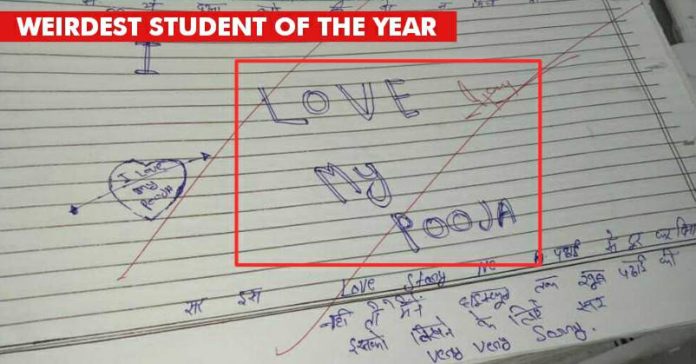 WEIRDEST STUDENT OF THE YEAR
I
LOVE
I Love
my
Pooja
My
POOJA
सर इस Love Story ने पढाई से दूर कर दिया
नहीं तो मैंने हाईस्कूल तक खूब पढाई की
इसको लिखने के लिये सर
very very Sorry.